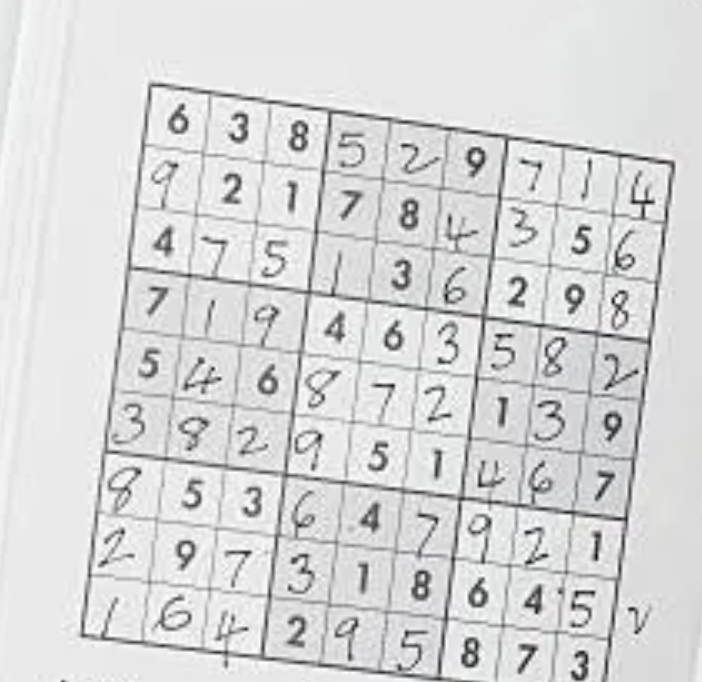 6 3 8 5 2 9 7 1 4
9 2 1 7 8 4 3 5 6
4 7 5 1 3 6 2 9 8
7 1 9 4 6 3 5 8 2
5 4 6 8 7 2 1 3 9
3 8 2 9 5 1 4 6 7
8 5 3 6 4 7 9 2 1
2 9 7 3 1 8 6 4 5
1 6 4 2 9 5 8 7 3